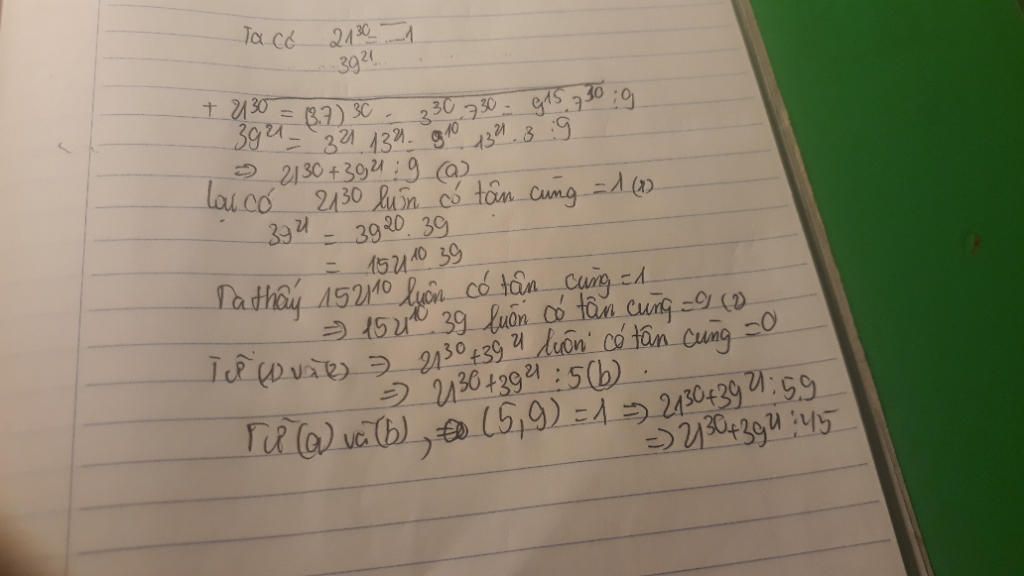 Ta có 21³⁰ = ‾...1
39²¹
+ 21³⁰ = (3.7)³⁰ = 3³⁰.7³⁰ = 9¹⁵.7³⁰ ⋮ 9
39²¹ = 3²¹.13²¹ = 9¹⁰.13²¹.3 ⋮ 9
⇒ 21³⁰+39²¹ ⋮ 9 (a)
Lại có 21³⁰ luôn có tận cùng = 1 (1)
39²¹ = 39²⁰.39
= 1521¹⁰.39
Ta thấy 1521¹⁰ luôn có tận cùng = 1
⇒ 1521¹⁰.39 luôn có tận cùng = 9 (2)
Từ (1) và (2) ⇒ 21³⁰+39²¹ luôn có tận cùng = 0
⇒ 21³⁰+39²¹ ⋮ 5 (b).
Từ (a) và (b), (5,9) = 1 ⇒ 21³⁰+39²¹ ⋮ 5.9
⇒ 21³⁰+39²¹ ⋮ 45